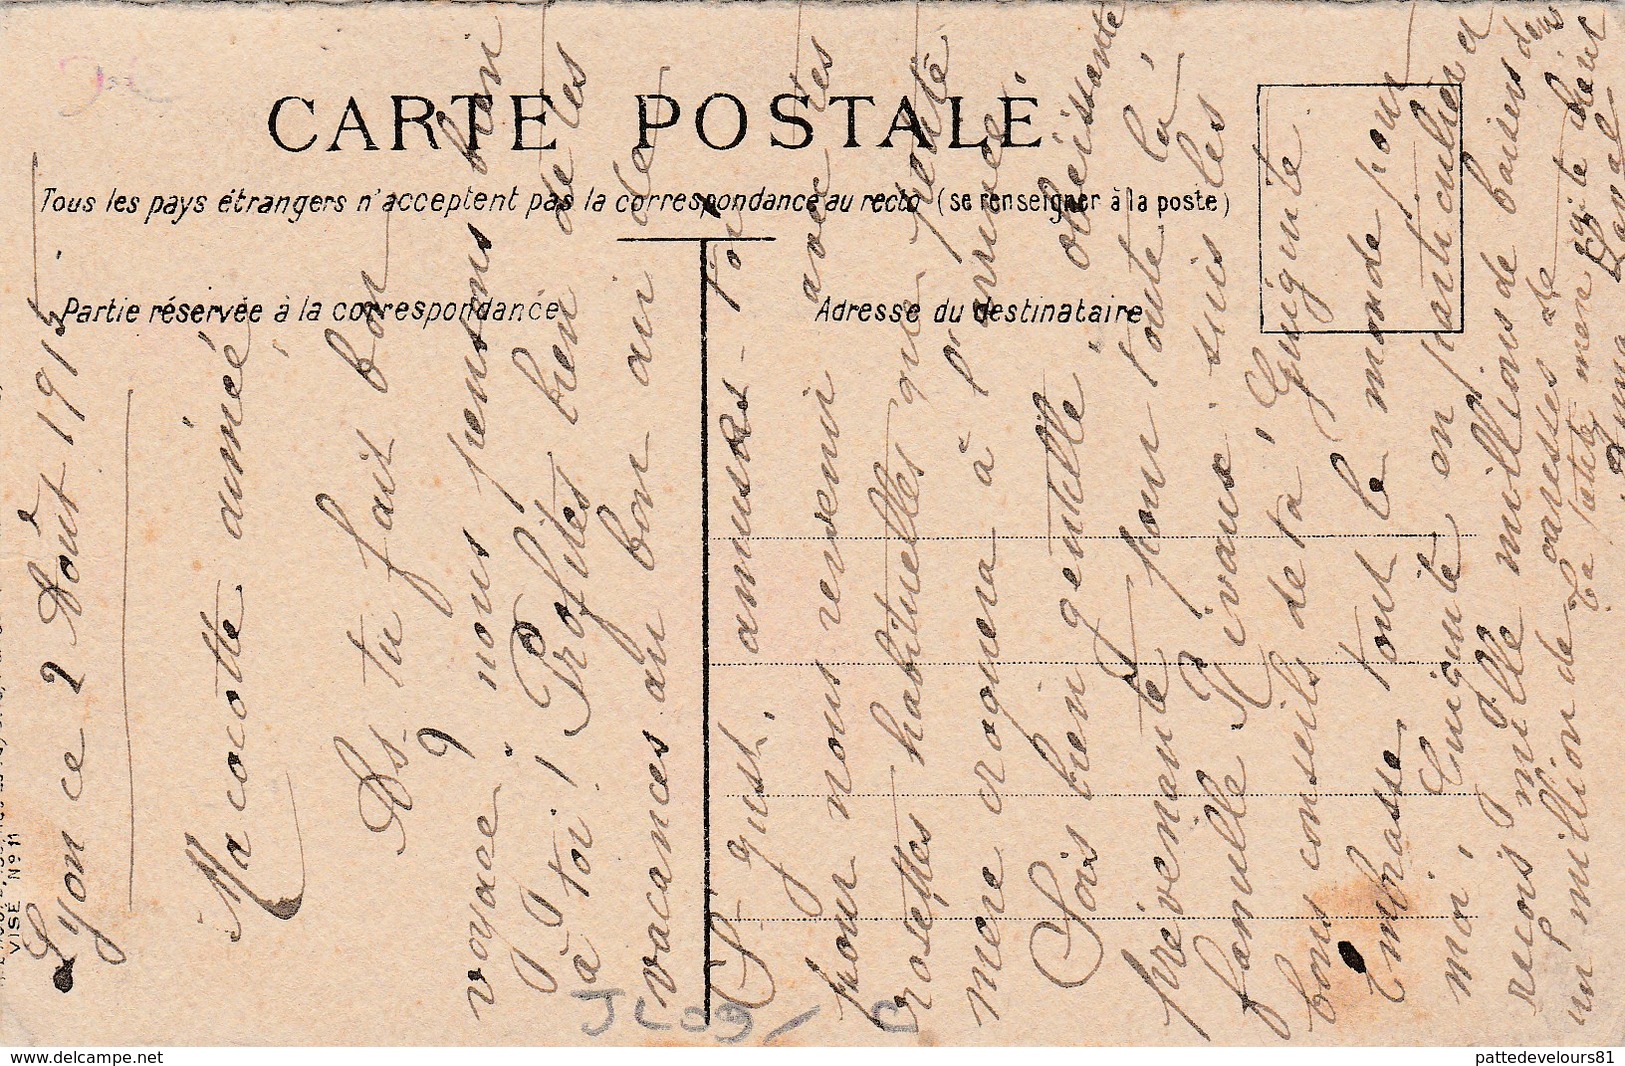 CARTE POSTALE
Tous les pays étrangers n'acceptent pas la correspondance au recto (se renseigner à la poste)
Partie réservée à la correspondance
Adresse du destinataire
VISÉ Nº 11
Lyon ce 2 Août 1915
Ma cocotte aimée
As-tu fait bon
voyage ? nous pensons bien
à toi ! Profites bien de tes
vacances du bon air de
St Just, amuses-toi
pour nous revenir avec tes
rosettes habituelles que petite
mère croquera à l'arrivée,
Sois bien gentille obéissante
prévenante pour toute la
famille Rivaux, suis les
bons conseils de ta Guiguite.
Embrasse tout le monde pour
moi, Guiguite en particulier et
reçois mille millions de baisers de
un million de caresses de
Ta petite mère qui te chérit
www.delcampe.net
pattedevelours81